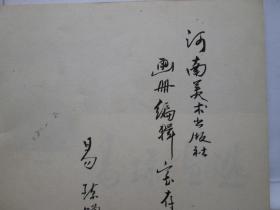 河南美术出版社
画册编辑室存
易